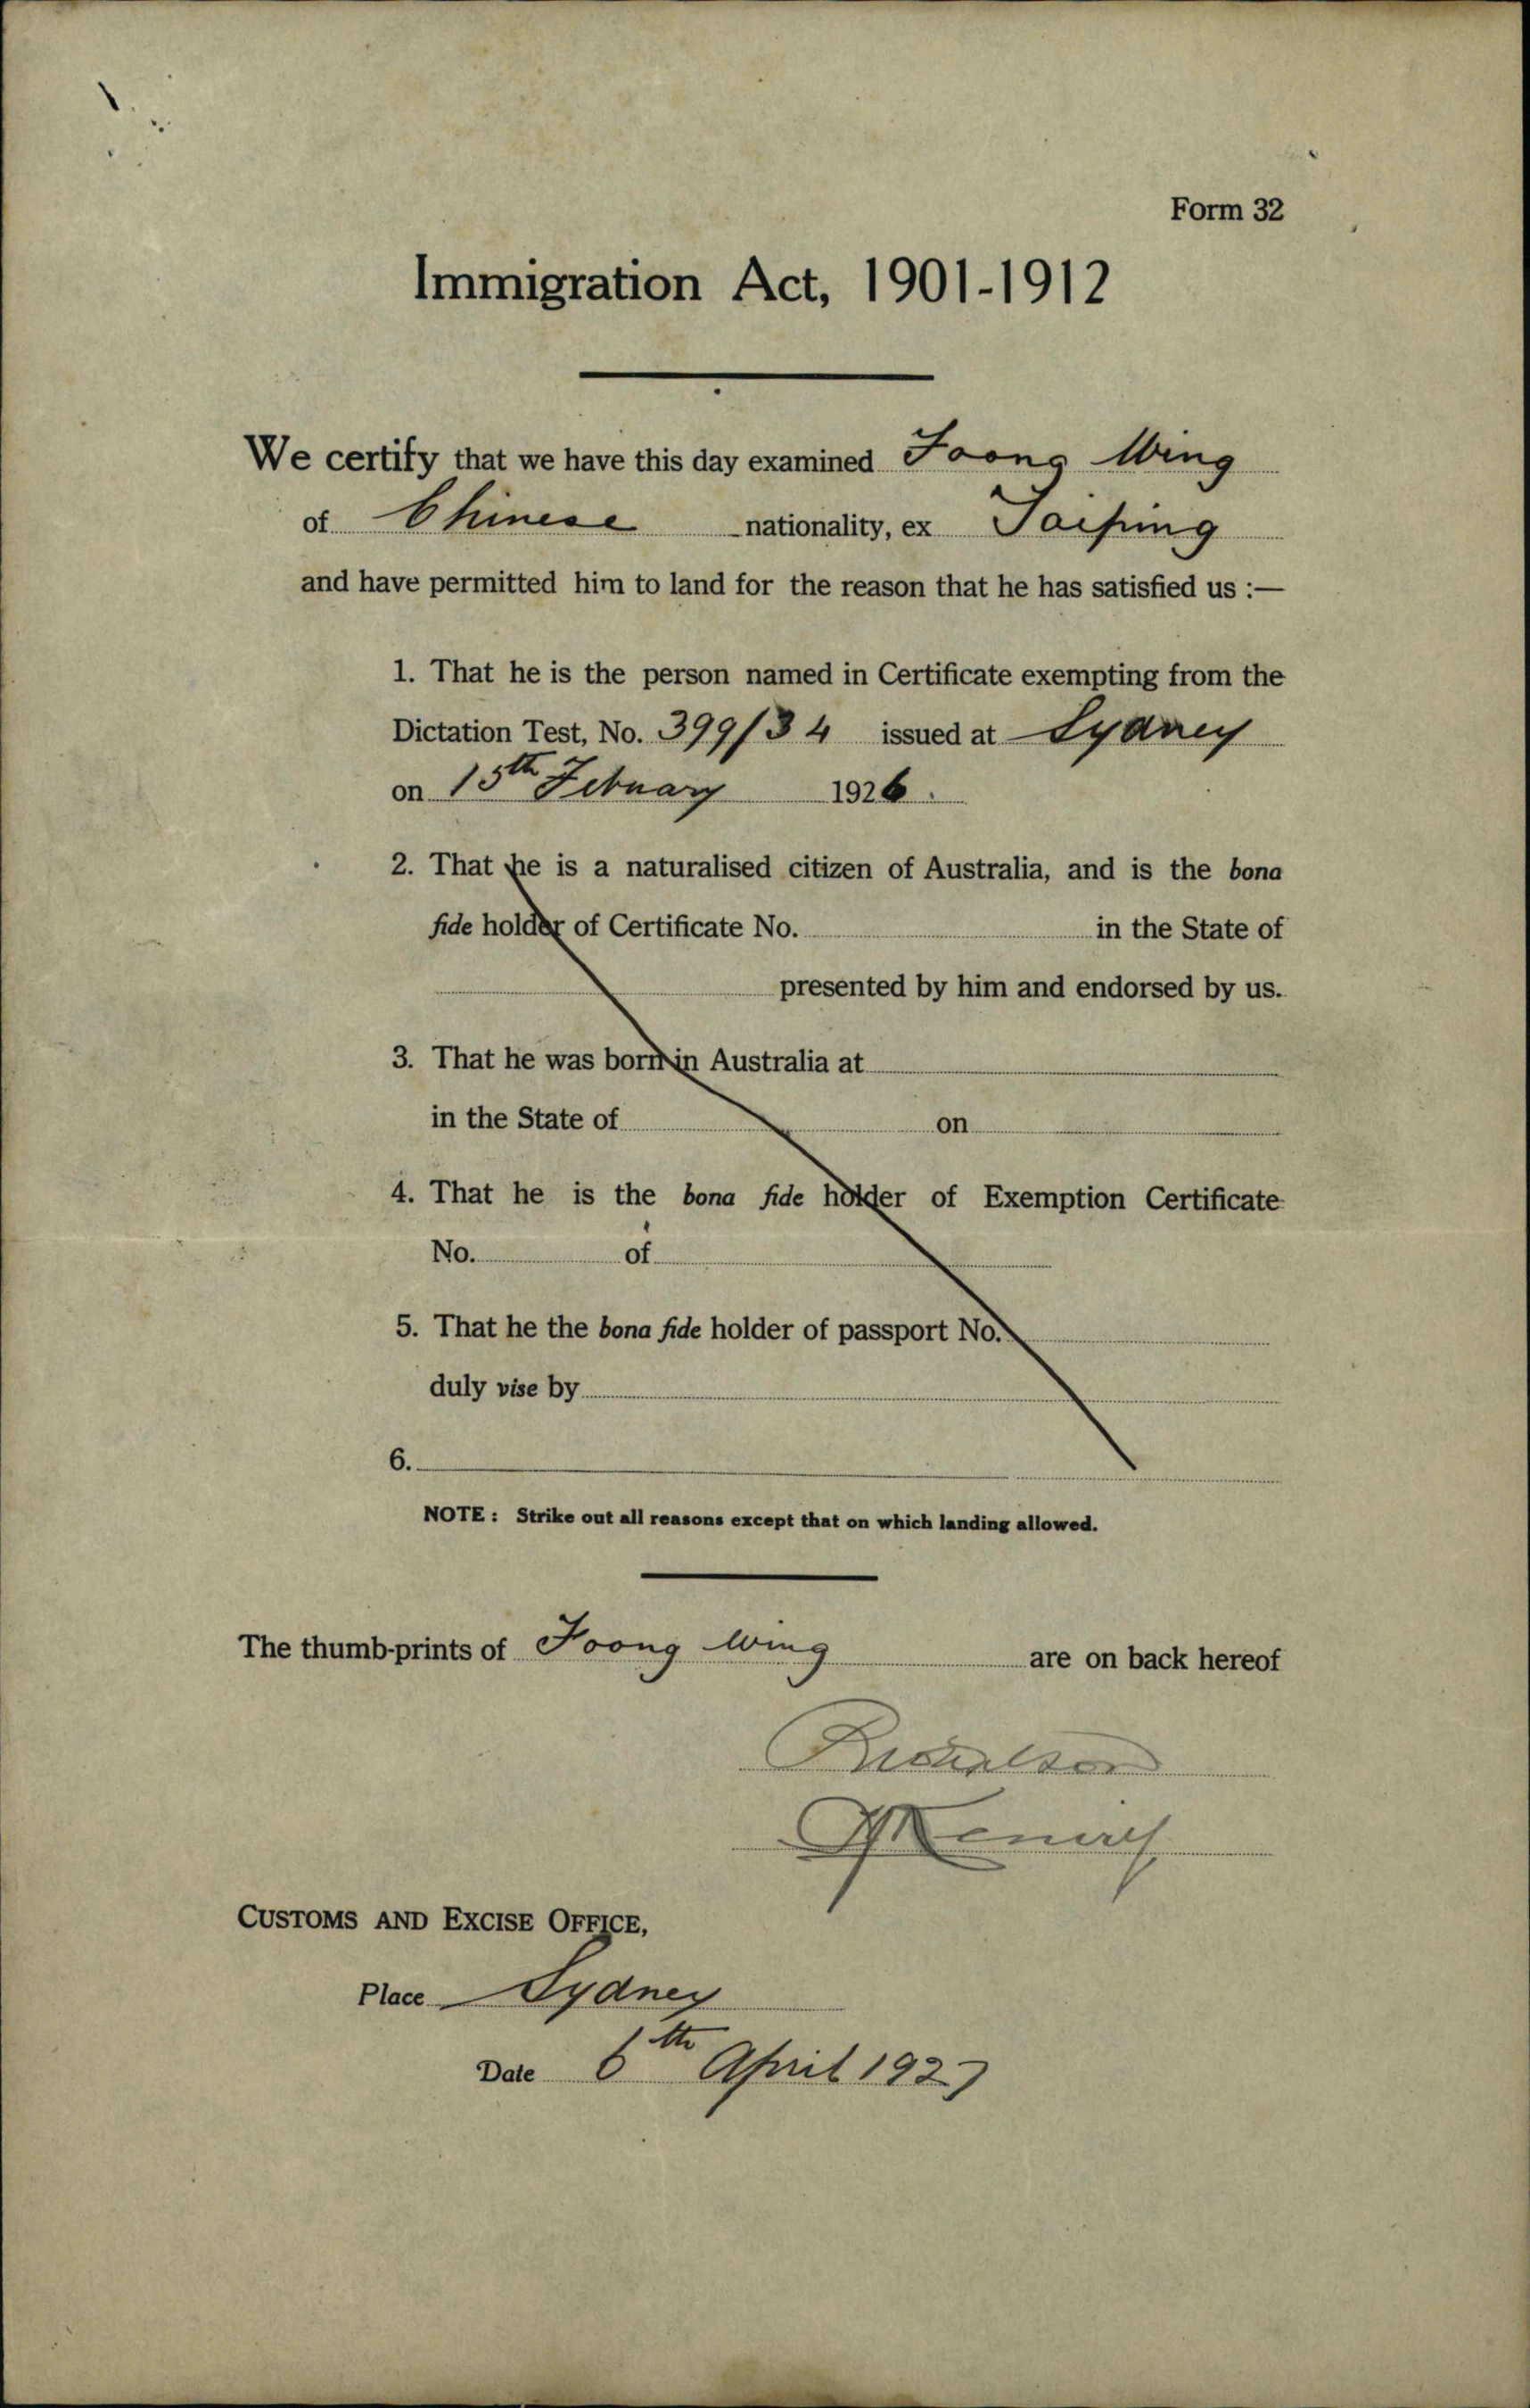 Form 32
Immigration Act, 1901-1912
We certify that we have this day examined Foong Wing
of Chinese nationality, ex Taiping
and have permitted him to land for the reason that he has satisfied us :—
1. That he is the person named in Certificate exempting from the
Dictation Test, No. 399/34 issued at Sydney
on 15th February 1926.
2. That he is a naturalised citizen of Australia, and is the bona
fide holder of Certificate No. in the State of
presented by him and endorsed by us.
3. That he was born in Australia at
in the State of on
4. That he is the bona fide holder of Exemption Certificate
No. of
5. That he the bona fide holder of passport No.
duly vise by
6.
NOTE : Strike out all reasons except that on which landing allowed.
The thumb-prints of Foong Wing are on back hereof
CUSTOMS AND EXCISE OFFICE,
Place Sydney
Date 6th April 1927